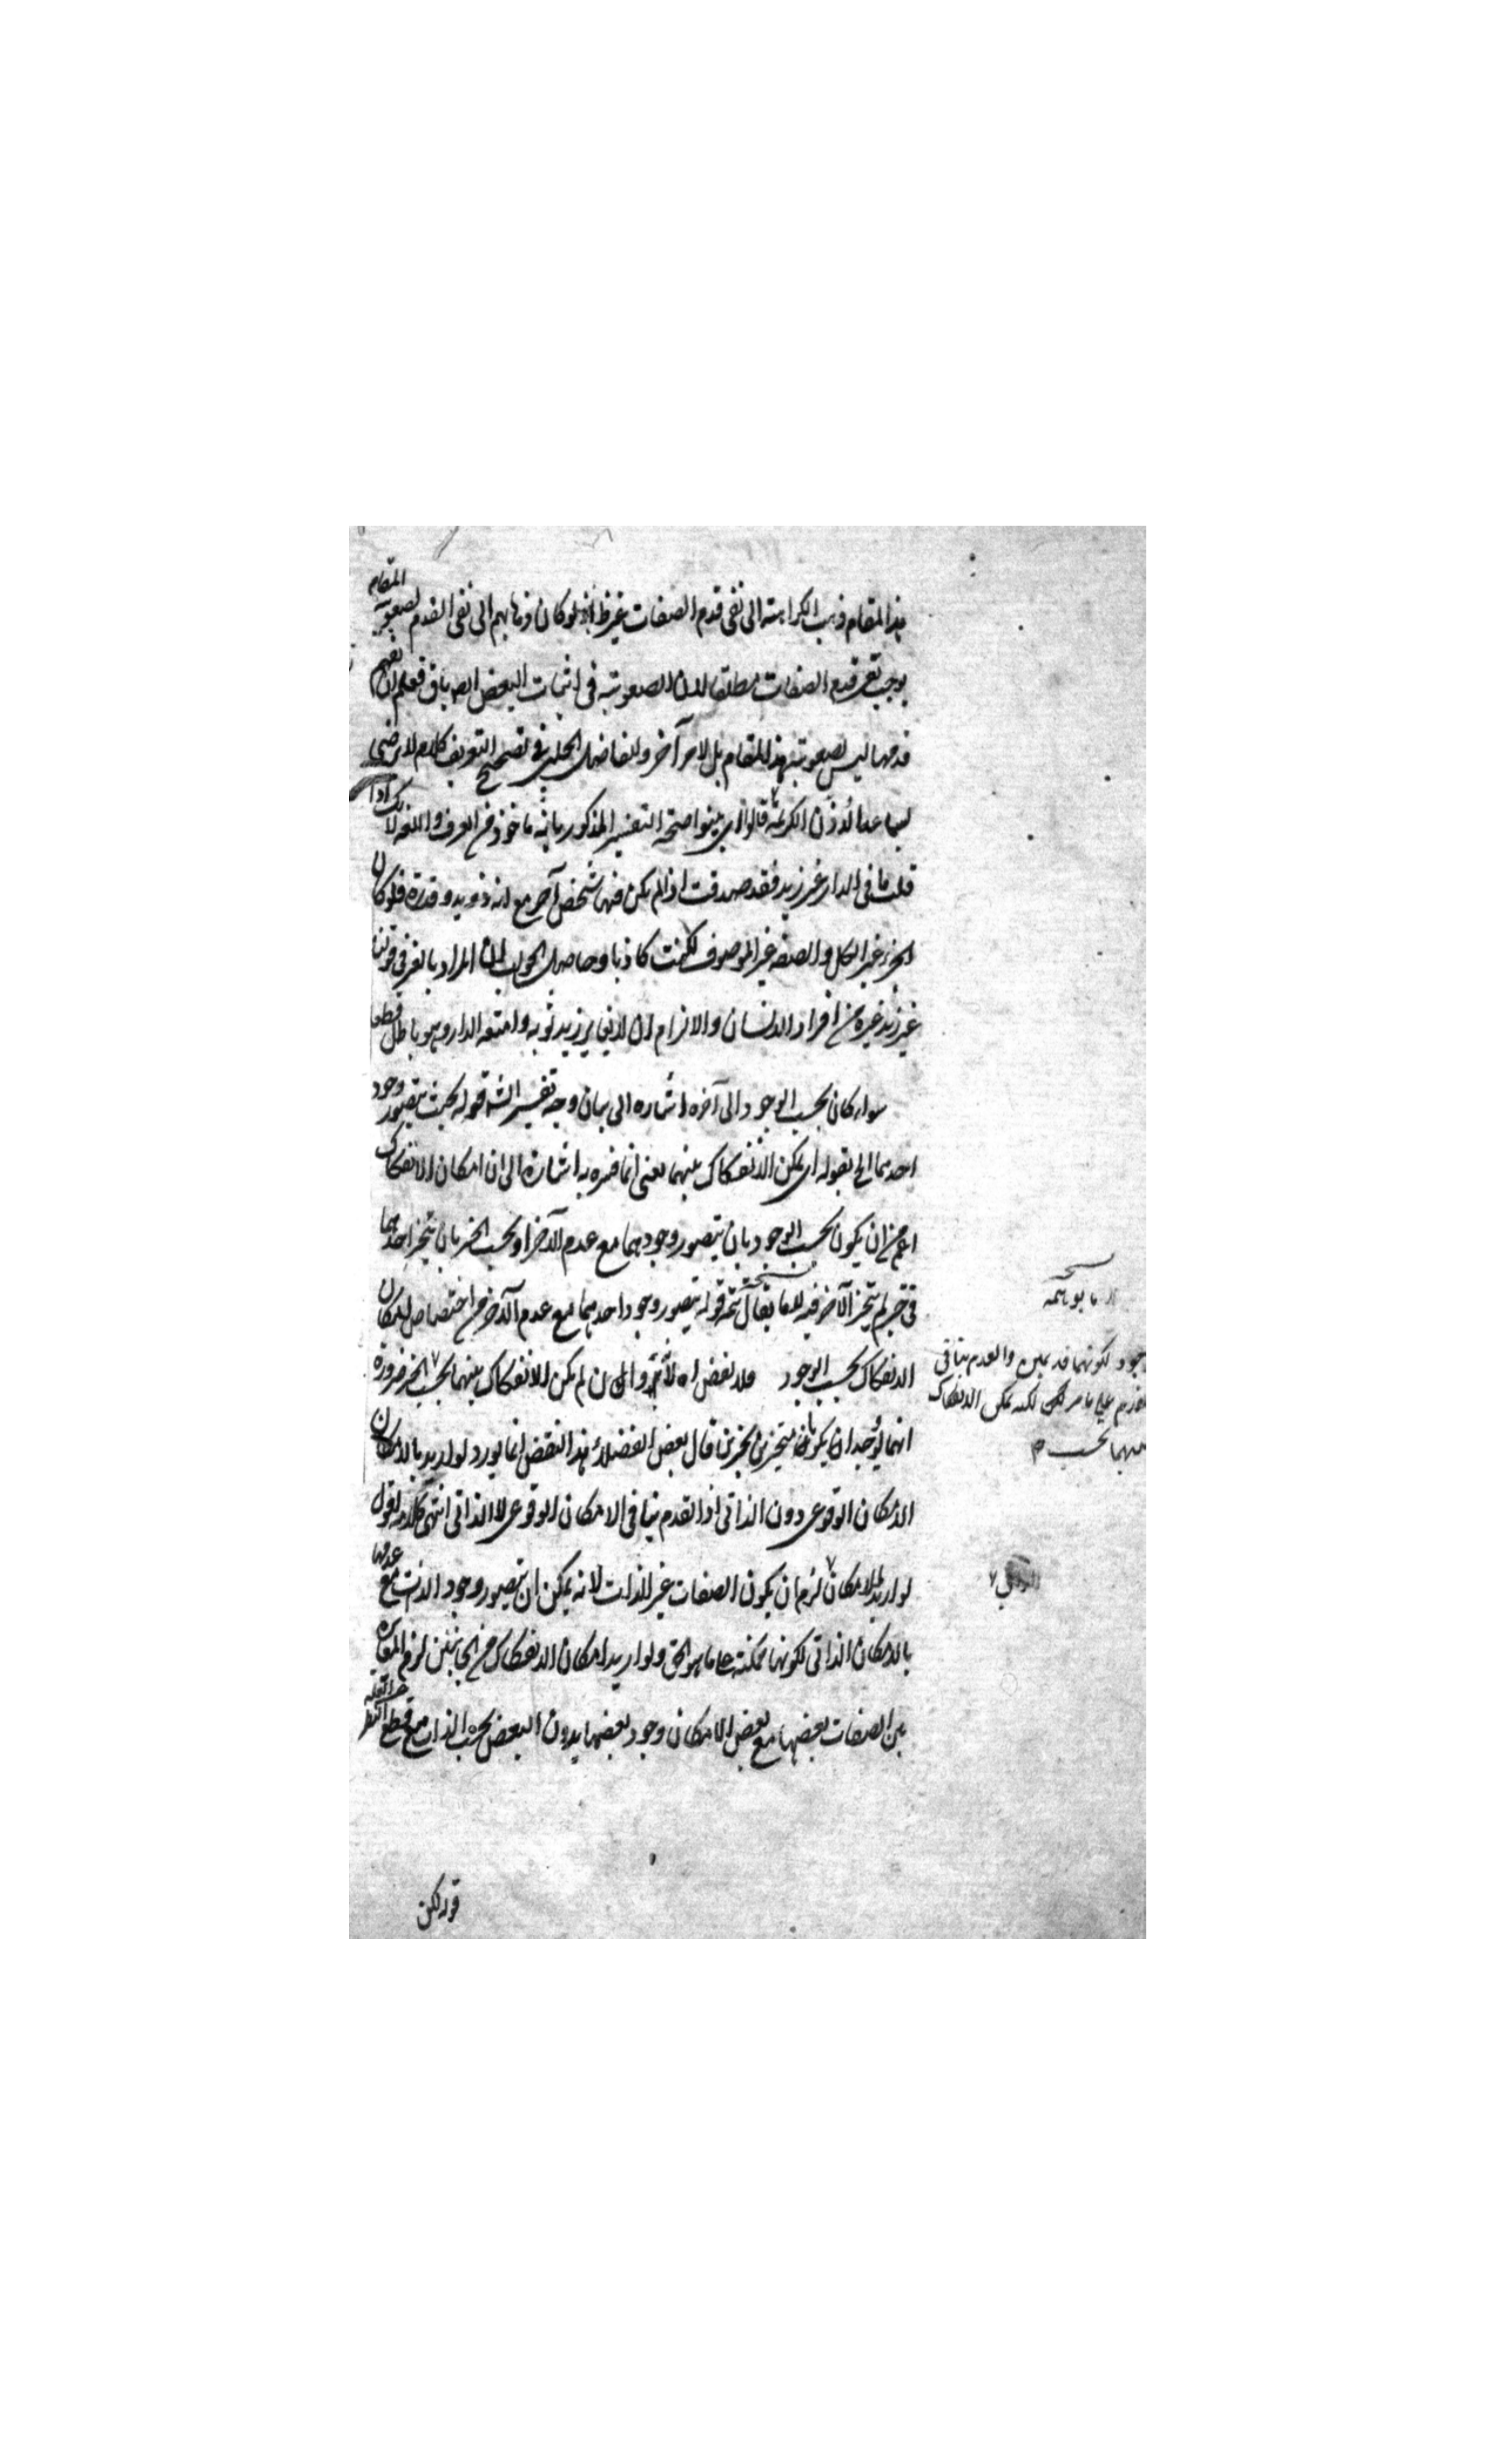 هذا المقام ذهب الكرامية الى نفى قدم الصفات غير ظ اذ لو كان ذهابهم الى نفى القدم لصعوبة المقام
يوجب نفى قدم الصفات مطلقا لان الصعوبة فى اثبات البعض الباق فعلم ان نفيهم
قدمها ليس لصعوبة هذا المقام بل لامر آخر وللفاضل الجلبى فى تصحيح التعريف كلام لا يرضى
قالوا اى بينوا صحة التفسير المذكور بانه ماخوذ من العرف واللغة لانك اذا
قلت ما فى الدار غير زيد فقد صدقت اذا لم يكن فيها شخص آخر مع انه ذو يد وقدرة فلو كان
الجزء غير الكل والصفة غير الموصوف لكنت كاذبا وحاصل الجواب ان المراد بالغير فى قولنا
غير زيد غيره من افراد الانسان والا لزم ان لا يغاير زيد ثوبه وامتعة الدار وهو باطل قطعا
سواء كان بحسب الوجود الى آخره اشاره الى بيان وجه تفسير الش قوله بحيث يتصور وجود
احدهما الخ بقوله اى يمكن الانفكاك بينهما يعنى انما فسره به اشارة الى ان امكان الانفكاك
اعم من ان يكون بحسب الوجود بان يتصور وجودهما مع عدم الآخر او بحسب الحيز بان يتحيز احدهما
فى حيز لم يتحيز الآخر فيه يتصور وجود احدهما مع عدم الآخر من اختصاص امكان
الانفكاك بحسب الوجود فلا نقض اه لم يكن الانفكاك بينهما بحسب الحيز ضرورة
انهما يكونا متحيزين بحيزين قال بعض الفضلاء هذا النقض انما يورد لو اريد بالامكان
الامكان الوقوعى دون الذاتى اذ القدم ينافى الامكان الوقوعى لا الذاتى انتهى كلامه اقول
لو اريد الامكان لزم ان يكون الصفات غير الذات لانه يمكن ان يتصور وجود الذات مع عدمها
بالامكان الذاتى لكونها ممكنة على ما هو الحق ولو اريد امكان الانفكاك من الجانبين لزم المغايرة
بين الصفات بعضها مع بعض لامكان وجود بعضها بدون البعض بحسب الذات مع قطع النظر
قوله لكن
نسخه
الوجود لكونهما قديمين والعدم ينافى
القدم على ما مر لكنه يمكن الانفكاك
بينهما بحسب